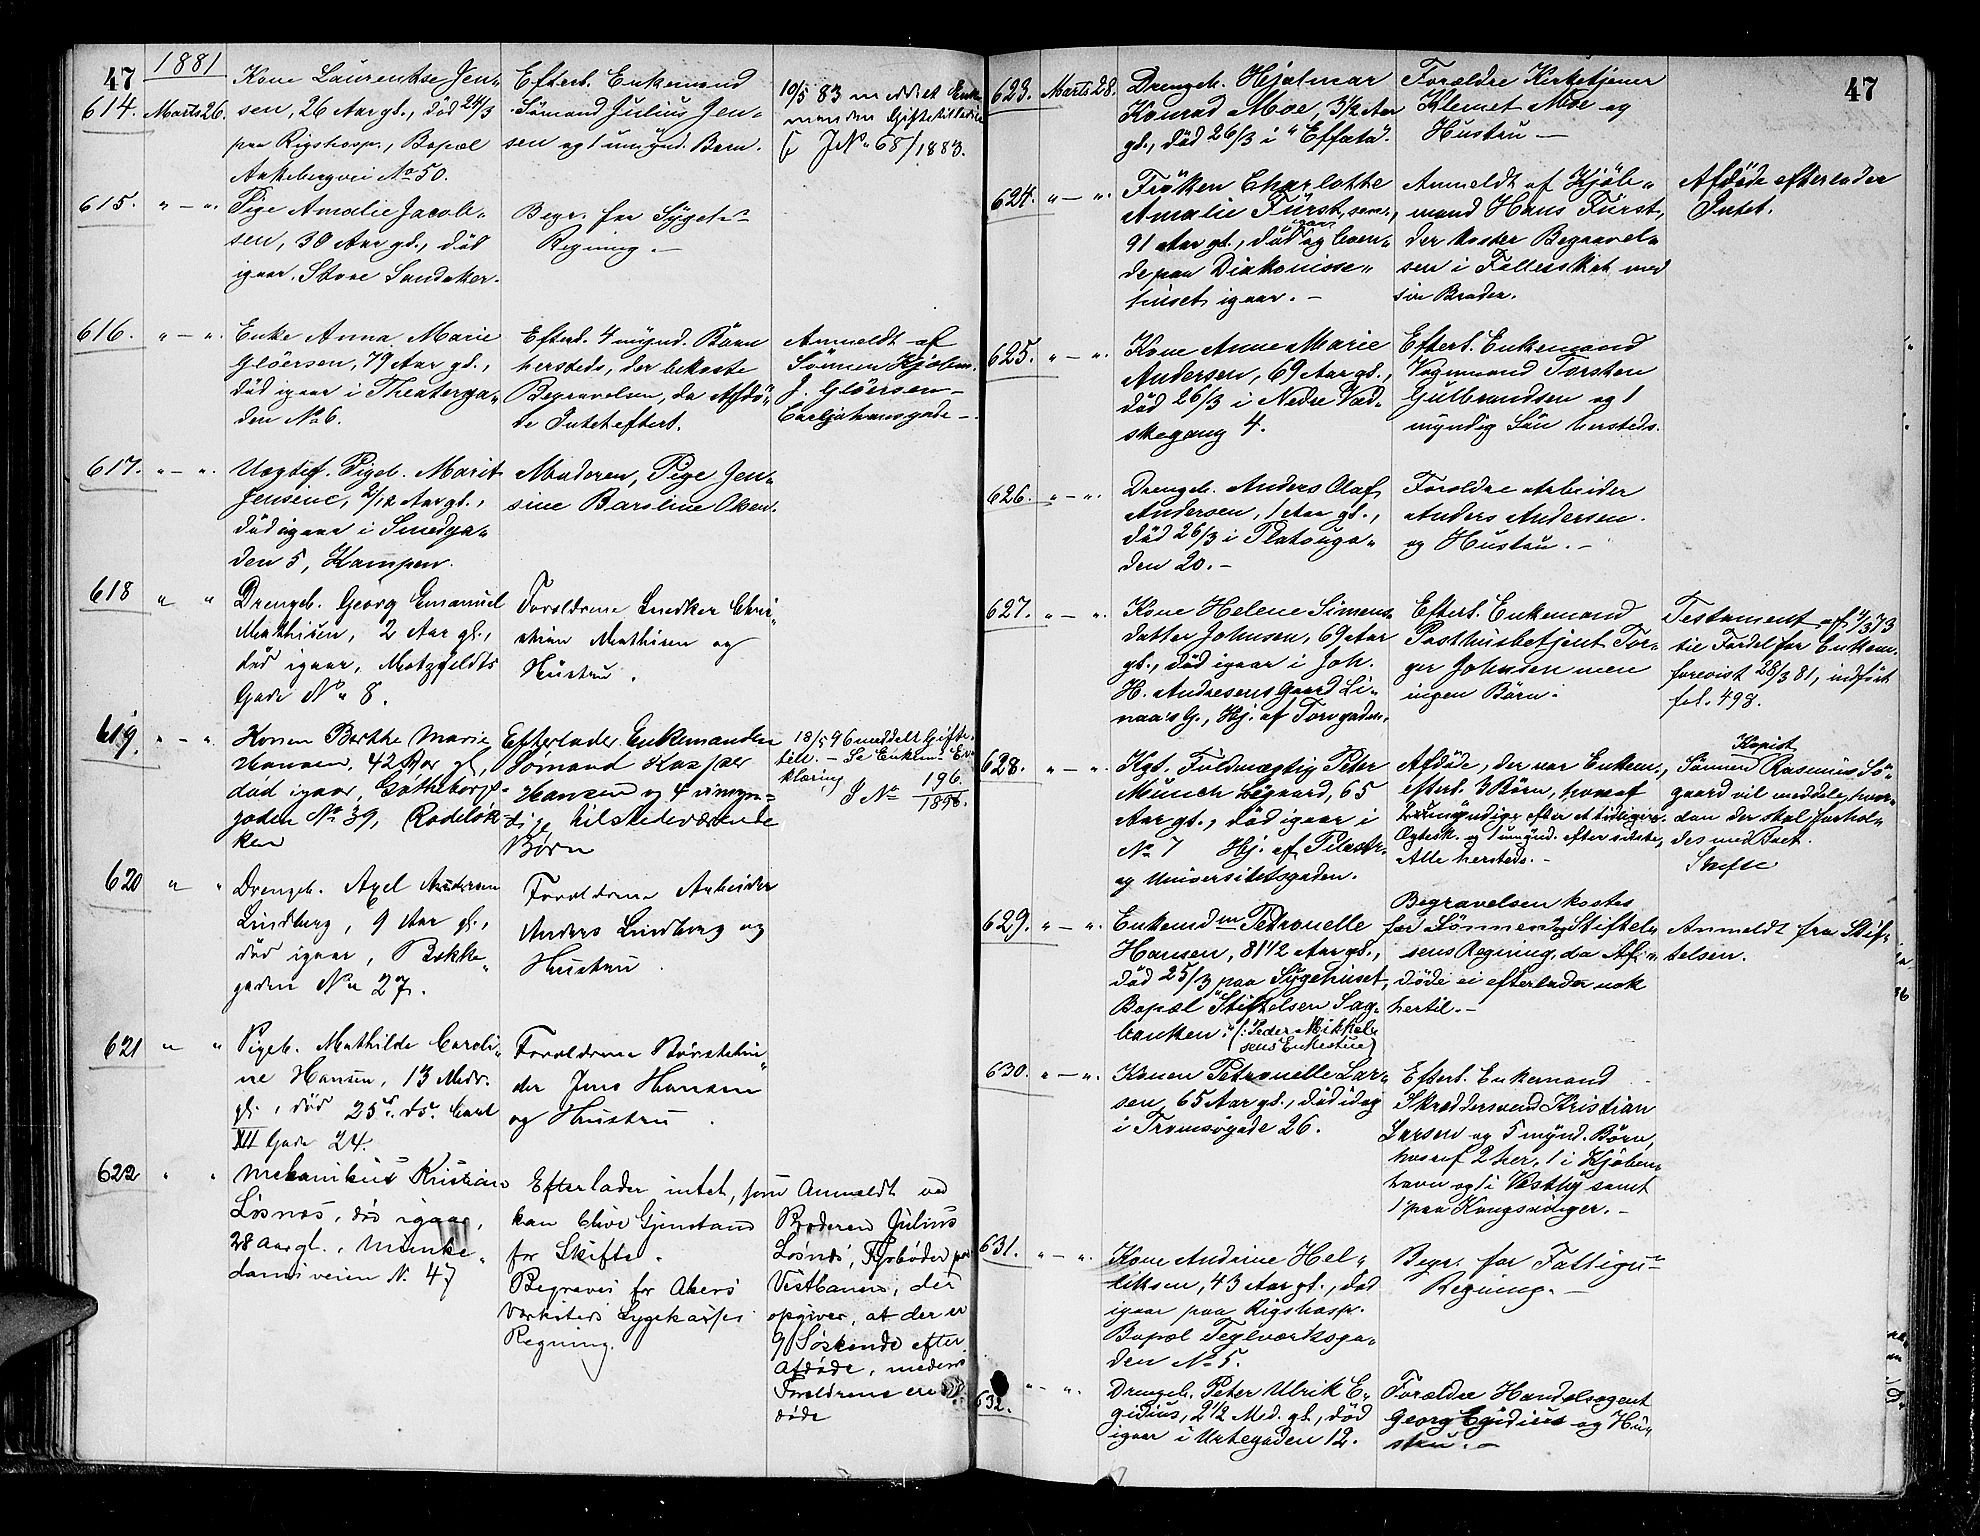 47
1881
614. Marts 26.
Kone Laurentse Jen„
sen, 26 Aar gl., död 24/3
paa Rigshosp., Bopæl
Akebergvei No 50.
Efterl. Enkemand
Sömand Julius Jen„
sen og 1 umynd. Barn.
10/5 83 meddelt Enke
manden
J No 68/1883.
615. „ — „
Pige Amalie Jacob„
sen, 30 Aar gl., död
igaar. Store Sandaker.
Begr. for Syget
Regning. —
616. „ — „
Enke Anna Marie
Glöersen, 79 Aar gl.,
död igaar i Theaterga„
den No 6.
Efterl. 4 mynd. Börn
hersteds, der bekoste
Begravelsen, da Afdö„
de Intet efterl.
Anmeldt af
Sönnen Kjöbm.
J. Glöersen —
Carljohansgade —
617. „ — „
Uægtef. Pigeb. Marit
Jensine, 2/12 Aar gl.,
död igaar i Smedga„
den 5, Kampen.
Moderen, Pige Jen„
sine Baroline Olsen.
618 „ „
Drengeb. Georg Emanuel
Mathisen, 2 Aar gl.,
död igaar, Motzfeldts
Gade No 8.
Forældrene Snedker Chri„
stian Mathisen og
Hustru.
619. „ — „
Konen Berthe Marie
Hansen, 42 Aar gl,
död igaar, Gøtheborg„
gaden No 39, Rodeløk„
ken
Efterlader Enkemanden
Sømand Kasper
Hansen og 4 umyn„
dige, tilstedeværende
Børn
18/5 96 meddelt Gifte„
till. — Se Enkem. Er„
klæring
J No 196/1896.
620 „ „
Drengeb. Axel Andersen
Lindberg, 9 Aar gl,
död igaar, Bakke„
gaden No 27.
Forældrene Arbeider
Anders Lindberg og
Hustru.
621 „ „
Pigeb. Mathilde Caroli„
ne Hansen, 13 Mdr.
gl., død 25d. ds. Carl
XII Gade 24.
Forældrene Børstebin„
der Jens Hansen
og Hustru.
622 „ „
Mekanikus Kristian
Løsnæs, død igaar,
28 Aar gl., Munke„
damsveien N. 47
Efterlader intet, som
kan blive Gjenstand
for Skifte.
Begraves for Akers
Værksteds Sygekasses
Regning.
Anmeldt ved
Broderen Julius
Løsnæs, Fyrbøder paa
Vestbanen, der
opgiver, at der er
9 Søskende efter
Afdøde, medens
Forældrene ere
døde
47
623. Marts 28.
Drengeb. Hjalmar
Konrad Moe, 3 1/2 Aar
gl., död 26/3 i "Effata".
Forældre Kirketjener
Klemet Moe og
Hustru —
624. „ — „
Fröken Charlotte
Amalie Fürst, sen.,
91 Aar gl., död og boen„
de paa Diakonisse„
huset igaar. —
Anmeldt af Kjöb„
mand Hans Fürst,
der koster Begravel„
sen i Fællesskab med
sin Broder.
Afdöde efterlader
Intet.
625. „ — „
Kone Anne Marie
Andersen, 69 Aar gl.,
död 26/3 i Nedre Væd„
skegang 4.
Efterl. Enkemand
Vognmand Torsten
Gulbrandsen og 1
myndig Sön hersteds.
626. „ — „
Drengeb. Anders Olaf
Andersen, 1 Aar gl.,
död 26/3 i Platouga„
den 20. —
Forældre Arbeider
Anders Andersen
og Hustru. —
627. „ — „
Kone Helene Simens„
datter Johnsen, 69 Aar
gl., död igaar i Joh.
H. Andresens Gaard Li„
naas G., Hj. af Torvgaden.
Efterl. Enkemand
Posthusbetjent Tor„
ger Johnsen men
ingen Börn.
Testament af 4/3 73
til Fordel for Enkem.
forevist 28/3 81, indført
fol. 498.
628. „ — „
Kgt. Fuldmægtig Peter
Munch Sögaard, 65
Aar gl., död igaar i
No 7 Hj. af Pilestr.
og Universitetsgaden.
Afdöde, der var Enkem.,
efterl. 3 Börn, hvoraf
2 umyndige efter et tidligere
Ægtesk. og 1 umynd. efter sidste,
Alle hersteds. —
Kopist
Sönnen Rasmus Sö„
gaard vil meddele, hvor„
dan der skal forhol„
des med Boet.
Skifte
629. „ — „
Enkemdm Petronelle
Hansen, 81 1/2 Aar gl.,
död 25/3 paa Sygehuset,
Bopæl "Stiftelsen Sag„
banken". (: Peder Mikkel„
sens Enkestue)
Begravelsen kostes
for Sönnens og Stiftel„
sens Regning, da Af„
döde ei efterlader nok
hertil. —
Anmeldt fra Stif„
telsen.
630. „ — „
Konen Petronelle Lar„
sen, 65 Aar gl., död idag
i Tromsögade 26.
Efterl. Enkemand
Skræddersvend Kristian
Larsen og 5 mynd. Börn,
hvoraf 2 her, 1 i Kjöben„
havn og 1 i Vestby samt
1 paa Kongsvinger. —
631. „ — „
Kone Andrine Hel„
liksen, 43 Aar gl., död
igaar paa Rigshosp.
Bopæl Teglværksga„
den No 5.
Begr. for Fattigv
Regning. —
632. „ — „
Drengeb. Peter Ulrik E„
gidius, 2 1/2 Md. gl., död
igaar i Urtegaden 12.
Forældre Handelsagent
Georg Egidius og Hu„
stru. —